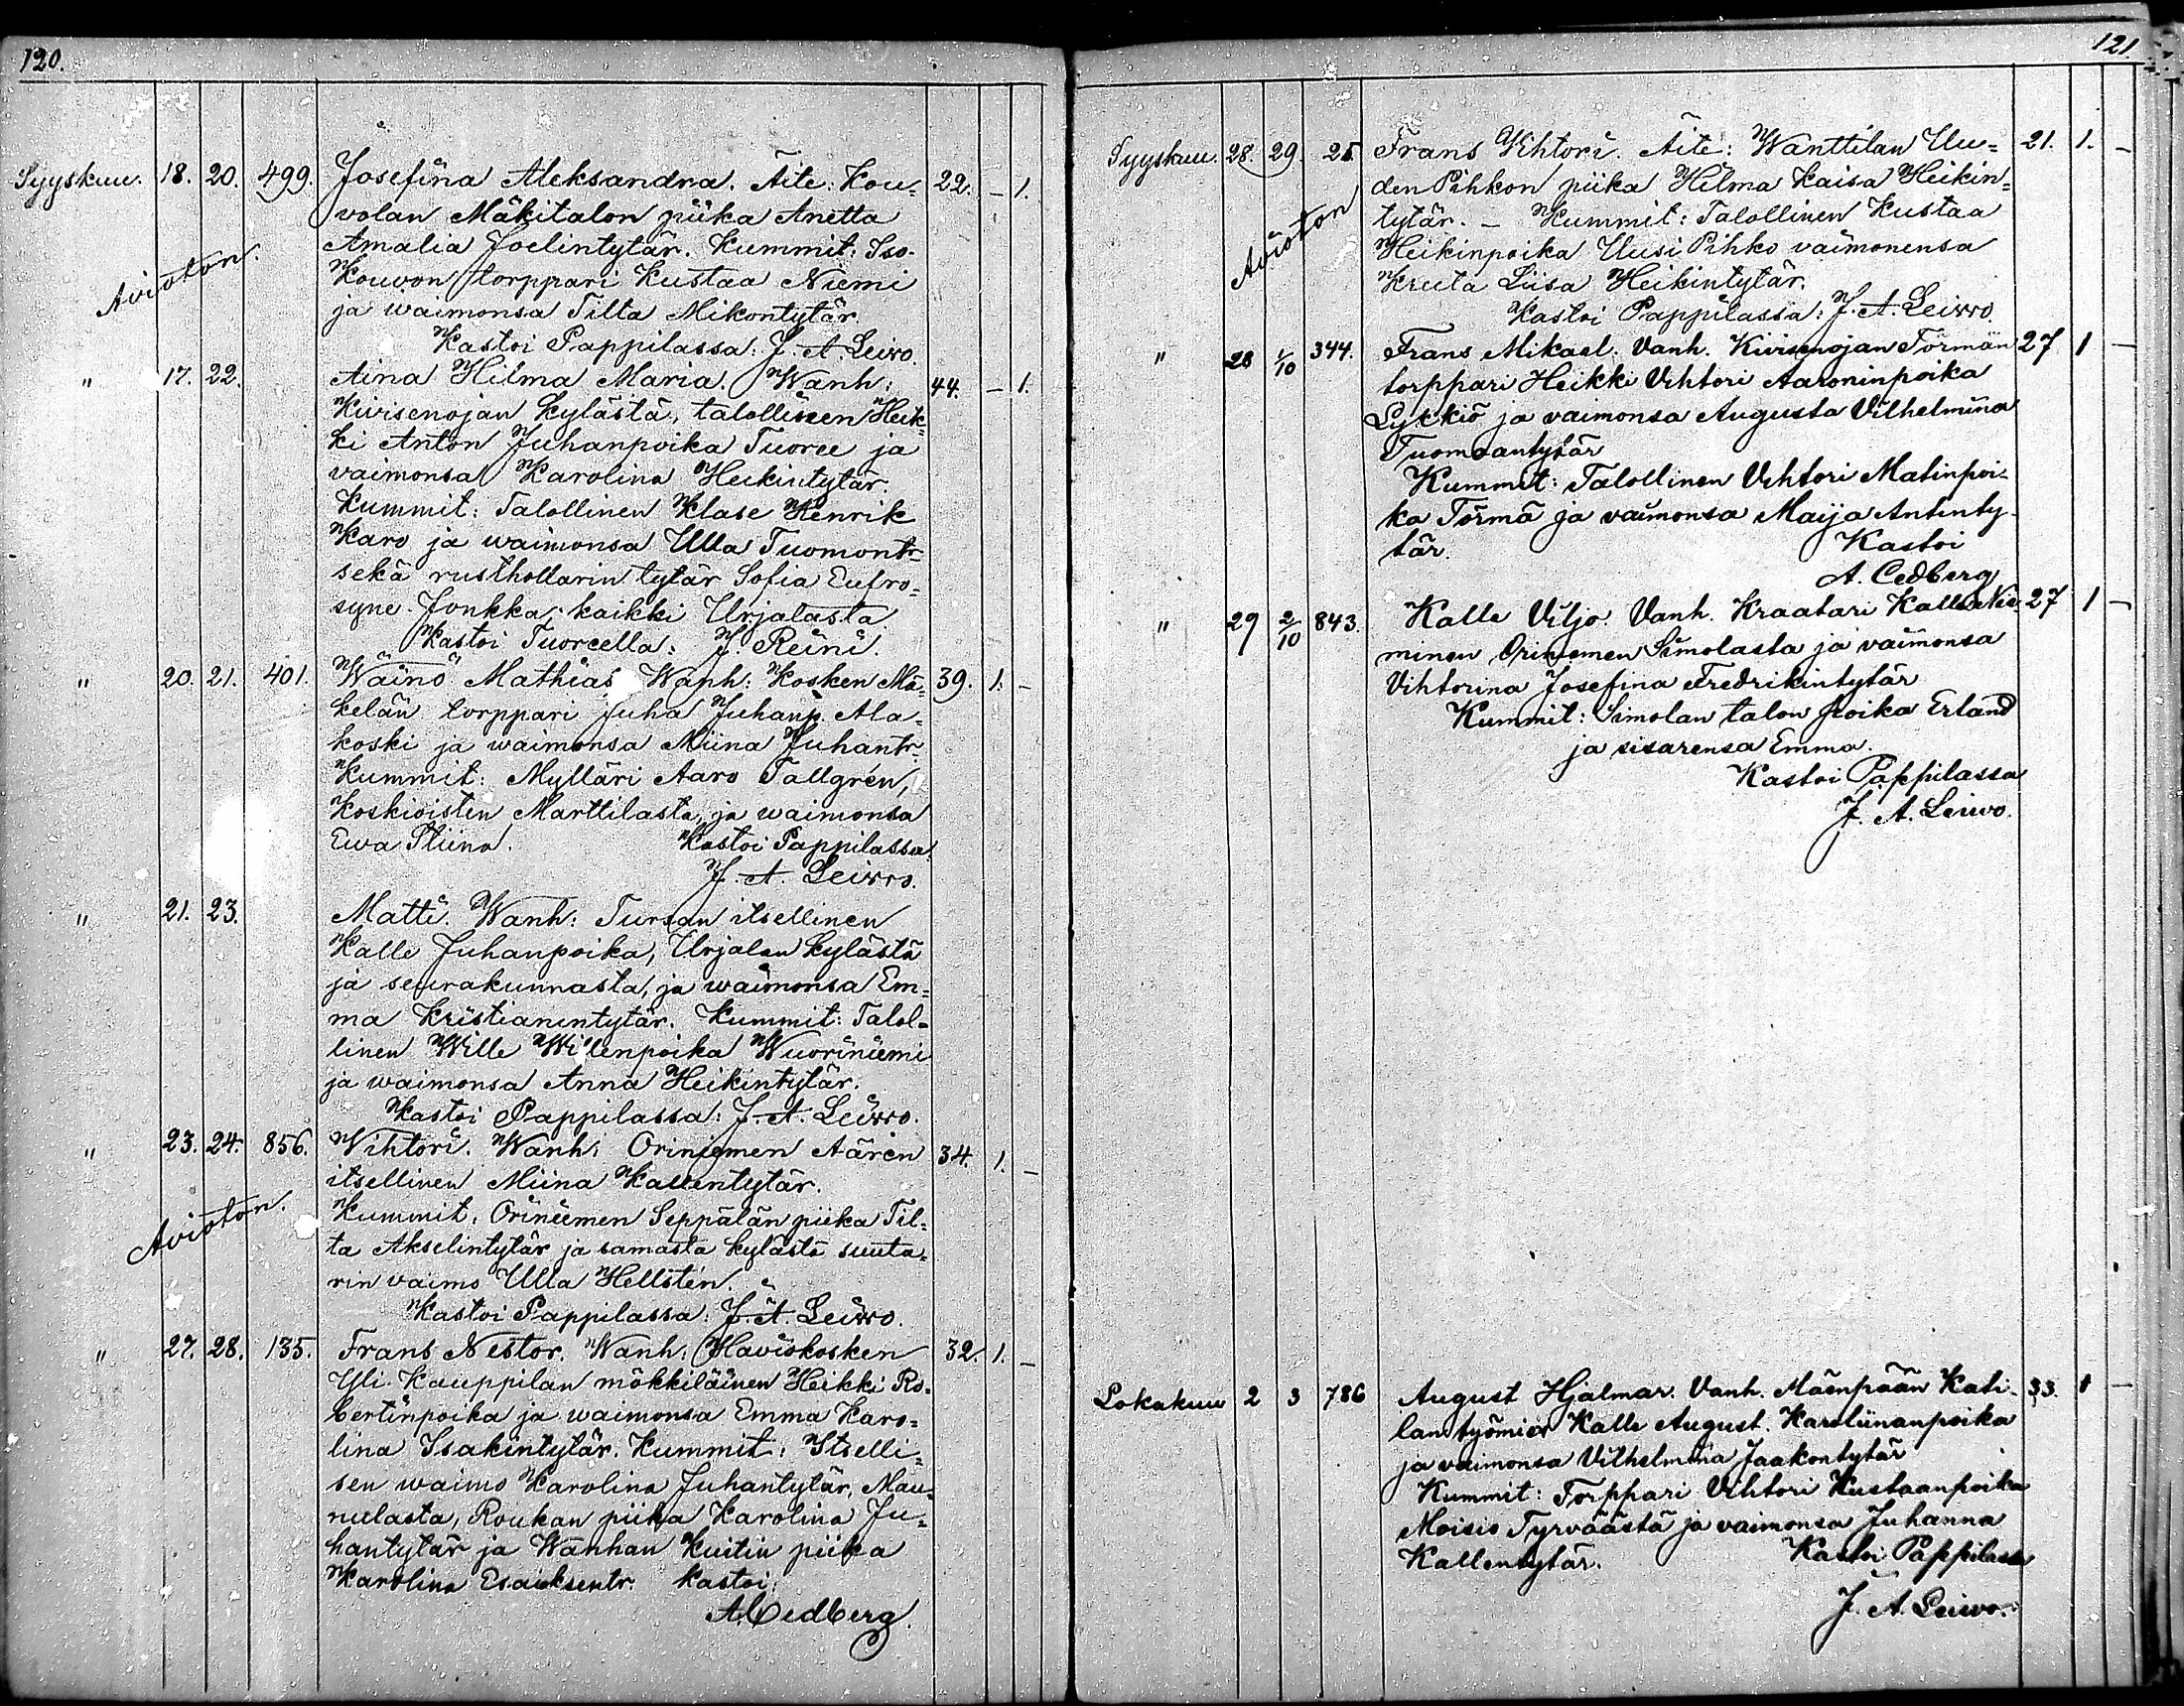 120.
Syyskuu. 18. 20. 499. Josefina Aleksandra. Äite: Kou- 22. – 1.
volan Mäkitalon piika Anetta
Amalia Joelintytär. Kummit: Iso-
Avioton.
Kouvon torppari Kustaa Niemi
ja waimonsa Tilta Mikontytär.
Kastoi Pappilassa: J. A. Leiwo.
" 17. 22. Aina Hilma Maria. Wanh: 44. – 1.
Kivisenojan kylästä, talollisen Heik-
ki Anton Juhanpoika Tuoree ja
vaimonsa Karolina Heikintytär.
Kummit: Talollinen Klase Henrik
Karo ja waimonsa Ulla Tuomontr.
sekä rusthollarin tytär Sofia Eufro-
syne Jonkka, kaikki Urjalasta
Kastoi Tuoreella: J. Reini.
" 20. 21. 401. Wäinö Mathias Wanh: Kosken Mä- 39. 1. –
kelän torppari Juha Juhanp. Ala-
koski ja waimonsa Miina Juhantr.
Kummit: Mylläri Aaro Tallgrén,
Koskioisten Marttilasta, ja waimonsa
Ewa Stiina. Kastoi Pappilassa:
J. A. Leiwo.
" 21. 23. Matti. Wanh: Tursan itsellinen
Kalle Juhanpoika, Urjalan kylästä
ja seurakunnasta, ja waimonsa Em-
ma Kristianintytär. Kummit: Talol-
linen Wille Willenpoika Wuoriniemi
ja waimonsa Anna Heikintytär.
Kastoi Pappilassa: J. A. Leiwo.
" 23. 24. 856. Wihtori. Wanh: Oriniemen Äären 34. 1. –
itsellinen Miina Kallentytär.
Avioton.
Kummit, Oriniemen Seppälän piika Til-
ta Akselintytär ja samasta kylästä suuta-
rin vaimo Ulla Hellstén.
Kastoi Pappilassa: J. A. Leiwo.
" 27. 28. 135. Frans Nestor. Wanh: Haviokosken 32. 1. –
Yli-Kauppilan mökkiläinen Heikki Ro-
bertinpoika ja waimonsa Emma Karo-
lina Isakintytär. Kummit: Itselli-
sen waimo Karolina Juhantytär, Mau-
nulasta, Roukan piika Karolina Ju-
hantytär ja Wanhan Kuitin piika
Karolina Esaiksentr. Kastoi:
A. Cedberg.
121.
Syyskuu. 28. 29. 25. Frans Vihtori. Äite: Wanttilan Uu- 21. 1. –
den Pihkon piika Hilma Kaisa Heikin-
Avioton
tytär. – Kummit: Talollinen Kustaa
Heikinpoika Uusi Pihko vaimonensa
Kreeta Liisa Heikintytär.
Kastoi Pappilassa: J. A. Leiwo.
" 28 1/10 344. Frans Mikael. Vanh. Kivisenojan Törmän 27 1 –
torppari Heikki Vihtori Aaroninpoika
Lykkiö ja vaimonsa Augusta Vilhelmina
Tuomaantytär
Kummit: Talollinen Vihtori Matinpoi-
ka Törmä ja vaimonsa Maija Antinty-
tär. Kastoi
A. Cedberg
" 29 2/10 843. Kalle Viljo. Vanh. Kraatari Kalle Nie- 27 1 –
minen Oriniemen Simolasta ja vaimonsa
Vihtorina Josefina Fredrikintytär
Kummit: Simolan talon poika Erland
ja sisarensa Emma.
Kastoi Pappilassa
J. A. Leiwo.
Lokakuu 2 3 786 August Hjalmar. Vanh. Mäenpään Kati- 33. 1 –
lan työmies Kalle August Karoliinanpoika
ja vaimonsa Vilhelmina Jaakontytär
Kummit: Torppari Vihtori Kustaanpoika
Moisio Tyrväästä ja vaimonsa Juhanna
Kallentytär. Kastoi Pappilassa
J. A. Leiwo.